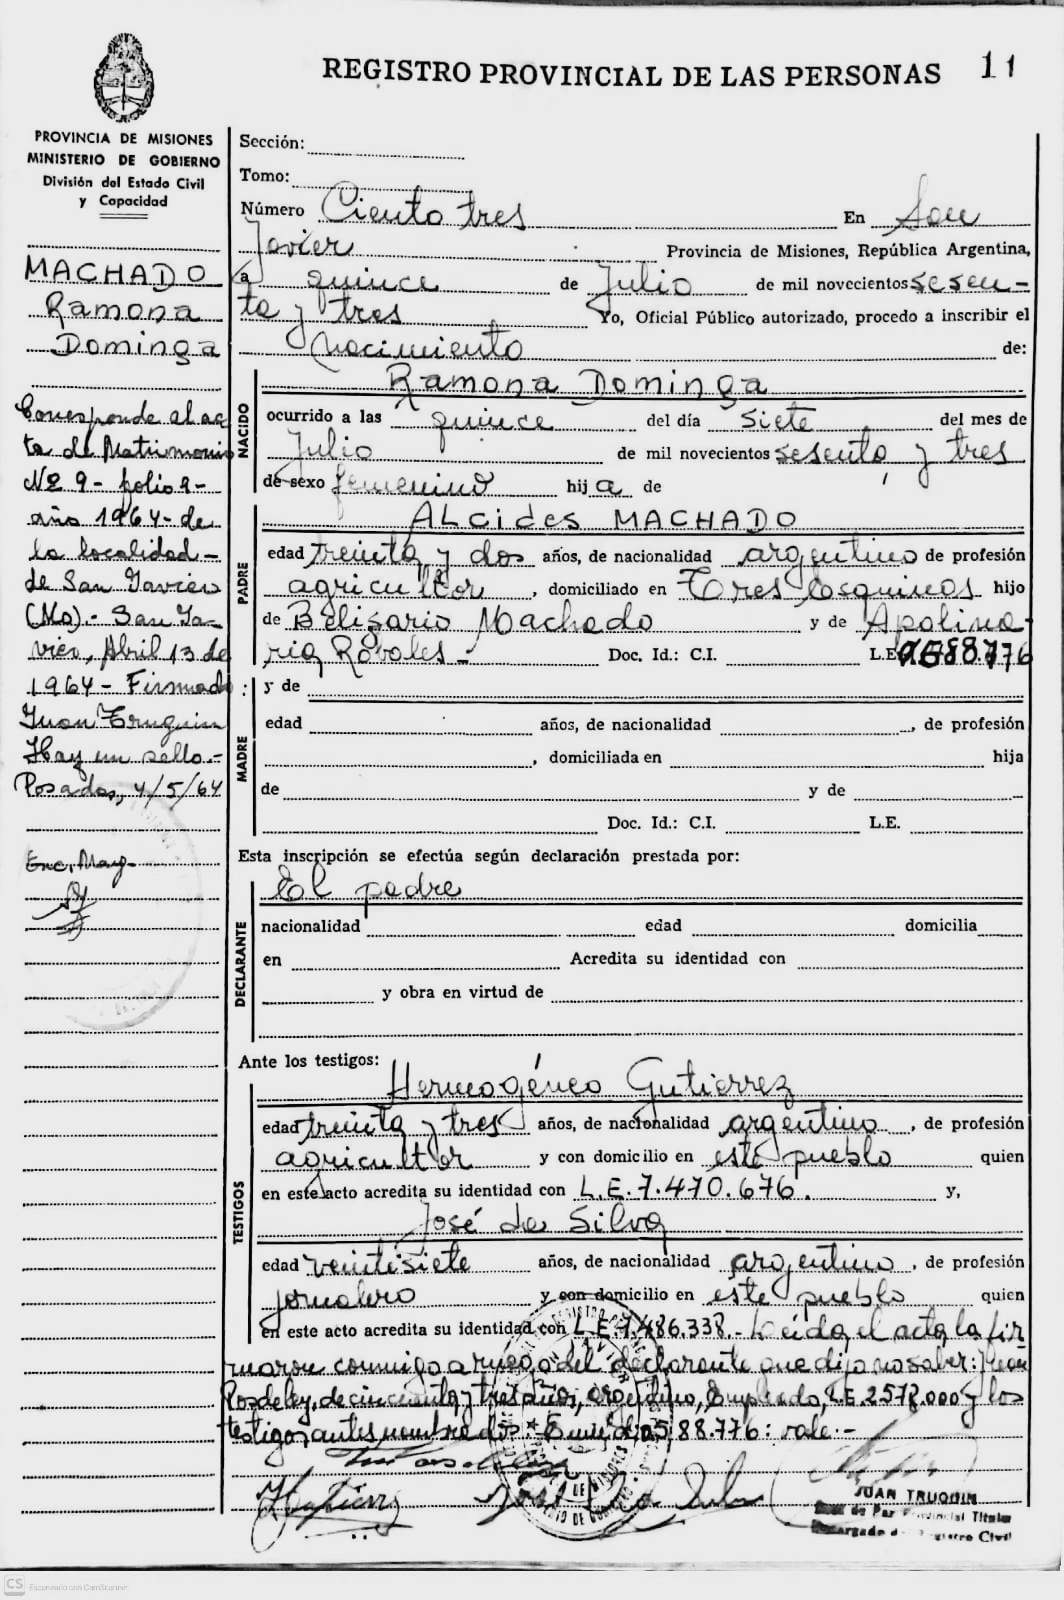 REGISTRO PROVINCIAL DE LAS PERSONAS 11
PROVINCIA DE MISIONES
MINISTERIO DE GOBIERNO
División del Estado Civil
y Capacidad
MACHADO
Ramona
Dominga
Corresponde al ac
ta de Matrimonio
Nº 9- folio 9-
año 1964- de
la localidad-
de San Javier
(Mo).- San Ja-
vier, Abril 13 de
1964- Firmado:
Juan Truquin
Hay un sello.-
Posadas, 4/5/64
Enc. May-
Sección:
Tomo:
Número Ciento tres En San
Javier Provincia de Misiones, República Argentina,
a quince de Julio de mil novecientos sesen-
ta y tres Yo, Oficial Público autorizado, procedo a inscribir el
Nacimiento de:
NACIDO
Ramona Dominga
ocurrido a las quince del día siete del mes de
Julio de mil novecientos sesenta y tres
de sexo femenino hij a de
PADRE
ALcides MACHADO
edad treinta y dos años, de nacionalidad argentino de profesión
agricultor , domiciliado en Tres Esquinas hijo
de Belisario Machado y de Apolina-
ria Robales- Doc. Id.: C.I. L.E. 7.588.776
MADRE
y de
edad años, de nacionalidad , de profesión
, domiciliada en hija
de y de
Doc. Id.: C.I. L.E.
Esta inscripción se efectúa según declaración prestada por:
DECLARANTE
El padre
nacionalidad edad domicilia
en Acredita su identidad con
y obra en virtud de
Ante los testigos:
TESTIGOS
Hermogéneo Gutierrez
edad treinta y tres años, de nacionalidad argentino , de profesión
agricultor y con domicilio en este pueblo quien
en este acto acredita su identidad con L.E. 7.470.676. y,
José da Silva
edad veintisiete años, de nacionalidad argentino , de profesión
jornalero y con domicilio en este pueblo quien
en este acto acredita su identidad con L.E. 7.486.338.- Leída el acta la fir
maron conmigo a ruego del declarante que dijo no saber: Juan
Rosdeley, de cincuenta y tres años, argentino, Empleado, L.E. 2578.000 y los
testigos antes nombrados.- 588.776: vale.-
JUAN TRUQUIN
Juez de Paz Provincial Titular
Encargado del Registro Civil
CS Escaneado con CamScanner